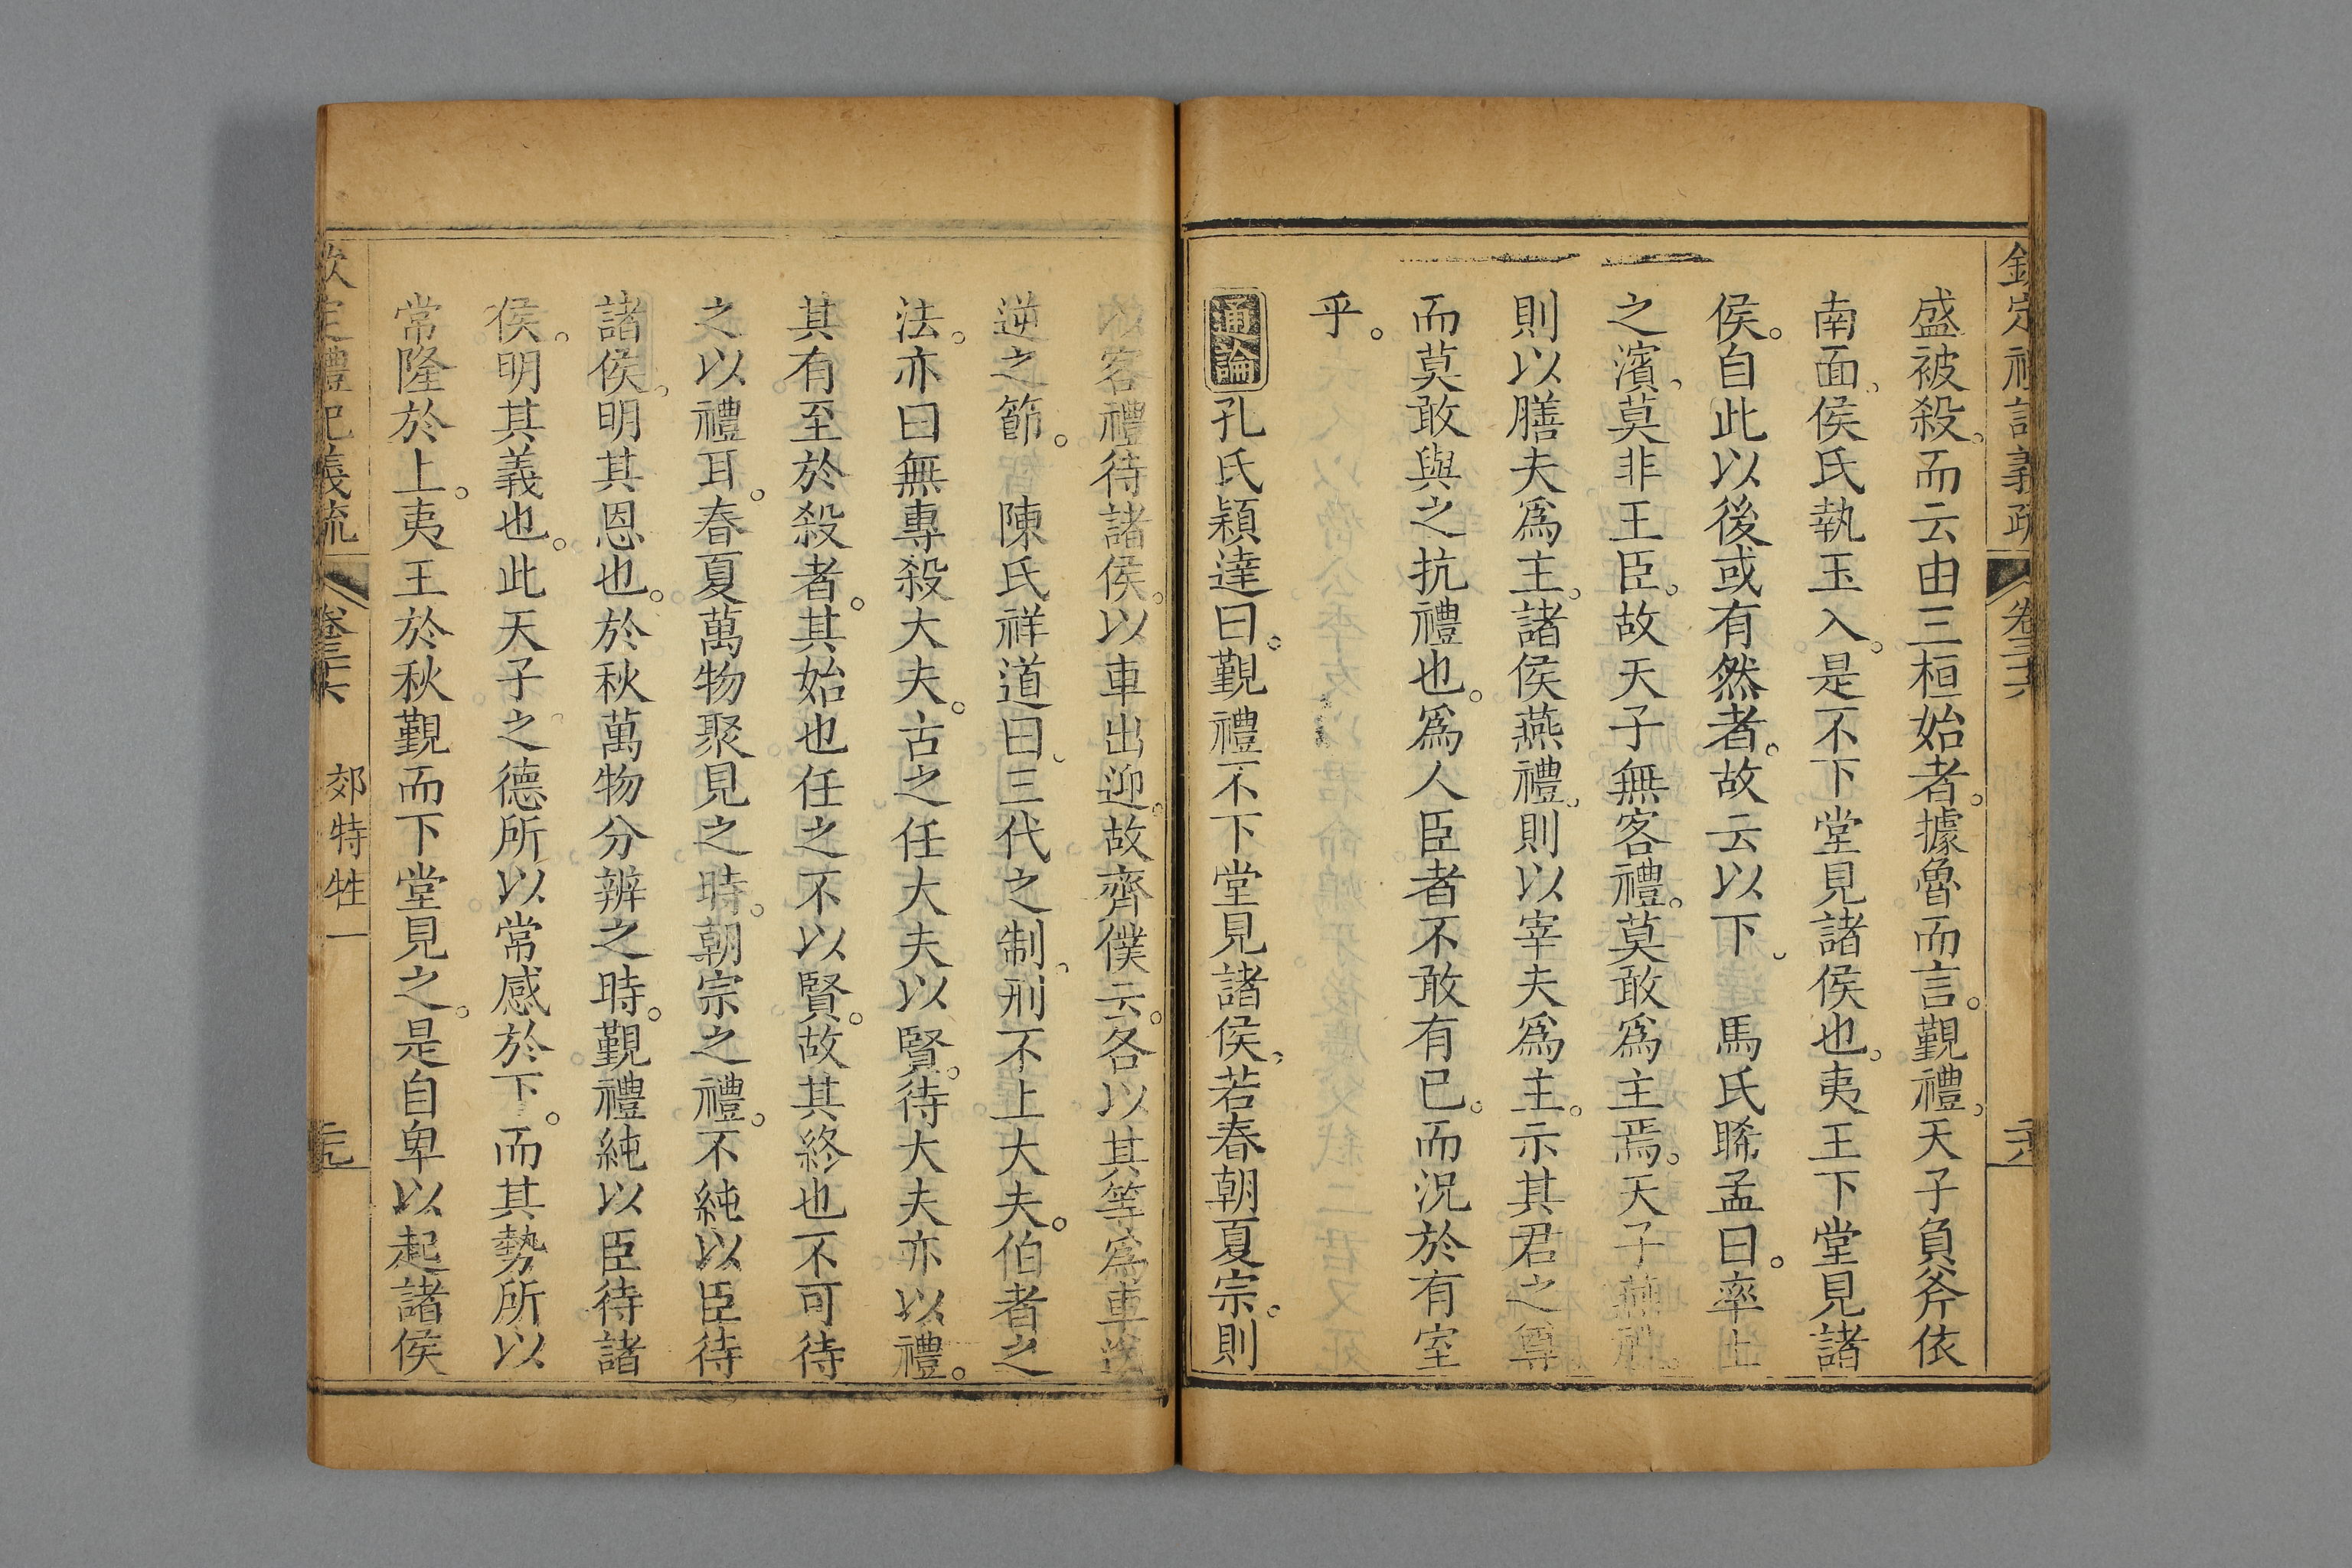 欽定禮記義疏 卷三六 二六
盛被殺、而云由三桓始者。據魯而言。覲禮、天子負斧依
南面、侯氏執玉入。是不下堂見諸侯也。夷王下堂見諸
侯。自此以後或有然者。故云以下、 馬氏睎孟曰。率土
之濱、莫非王臣。故天子無客禮。莫敢爲主焉。天子燕禮。
則以膳夫爲主。諸侯燕禮、則以宰夫爲主。示其君之尊
而莫敢與之抗禮也。爲人臣者不敢有已。而況於有室
乎。
通論 孔氏穎達曰。覲禮不下堂見諸侯、若春朝夏宗。則
以客禮待諸侯。以車出迎。故齊僕云。各以其等爲車送
逆之節。 陳氏祥道曰、三代之制、刑不上大夫。伯者之
法。亦曰無專殺大夫。古之任大夫以賢。待大夫亦以禮。
其有至於殺者。其始也任之不以賢。故其終也不可待
之以禮耳。春夏萬物聚見之時。朝宗之禮。不純以臣待
諸侯、明其恩也。於秋萬物分辨之時。覲禮純以臣待諸
侯。明其義也。此天子之德所以常感於下。而其勢所以
常隆於上。夷王於秋覲而下堂見之。是自卑以起諸侯
欽定禮記義疏 卷三六 郊特牲一 元